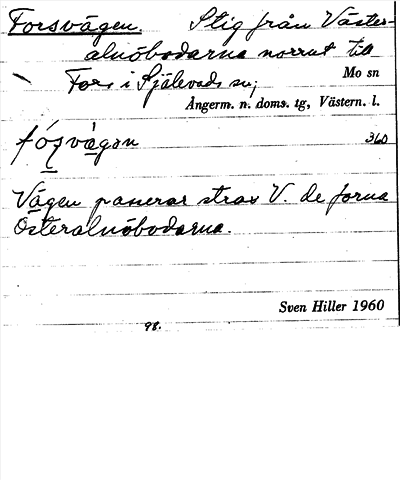 Forsvägen. Stig från Väster-
alnöbodarna norrut till
Fors i Själevads sn; Mo sn
Ångerm. n. doms. tg, Västern. l.
fósvägən 360
Vägen passerar strax V. de forna
Österalnöbodarna.
Sven Hiller 1960
98.